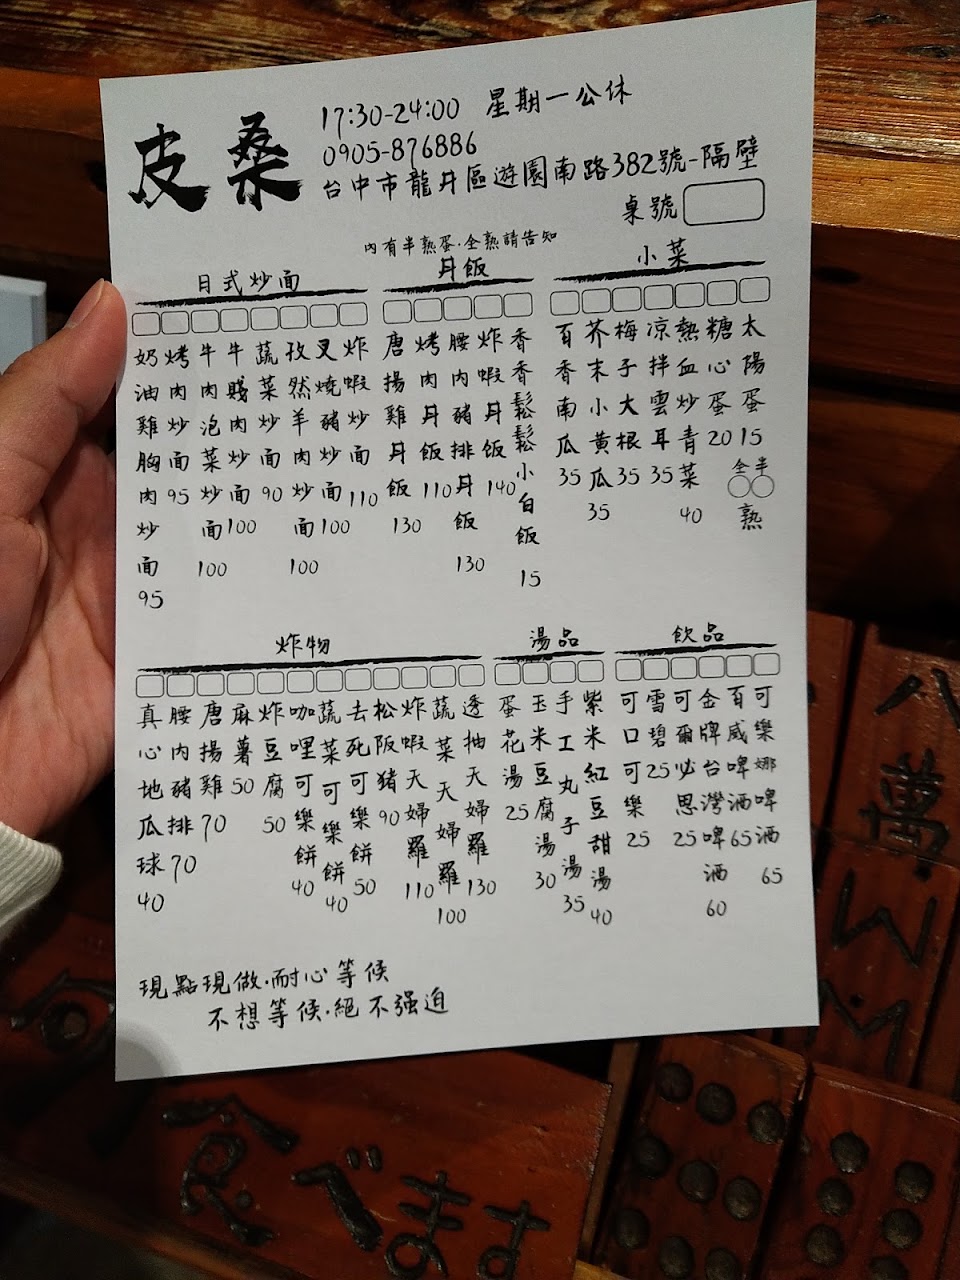 皮桑
17:30-24:00 星期一公休
0905-876886
台中市龍井區遊園南路382號-隔壁
桌號
內有半熟蛋·全熟請告知
日式炒面
奶油雞胸肉炒面95
烤肉炒面95
牛肉泡菜炒面100
牛賤肉炒面100
蔬菜炒面90
孜然羊肉炒面100
叉燒豬肉炒面100
炸蝦炒面110
丼飯
唐揚雞丼飯130
烤肉丼飯110
腰內豬排丼飯130
炸蝦丼飯140
香香鬆鬆小白飯15
小菜
百香南瓜35
芥末小黃瓜35
梅子大根35
凉拌雲耳35
熱血炒青菜40
糖心蛋20
太陽蛋15
全半
熟
炸物
真心地瓜球40
腰內豬排70
唐揚雞70
麻薯50
炸豆腐50
咖哩可樂餅40
蔬菜可樂餅40
去死可樂餅50
松阪猪90
炸蝦天婦羅110
蔬菜天婦羅100
透抽天婦羅130
湯品
蛋花湯25
玉米豆腐湯30
手工丸子湯35
紫米紅豆甜湯40
飲品
可口可樂25
雪碧25
可爾必思25
金牌台灣啤酒60
百威啤酒65
可樂娜啤酒65
現點現做·耐心等候
不想等候·絕不强迫
八萬
食べます